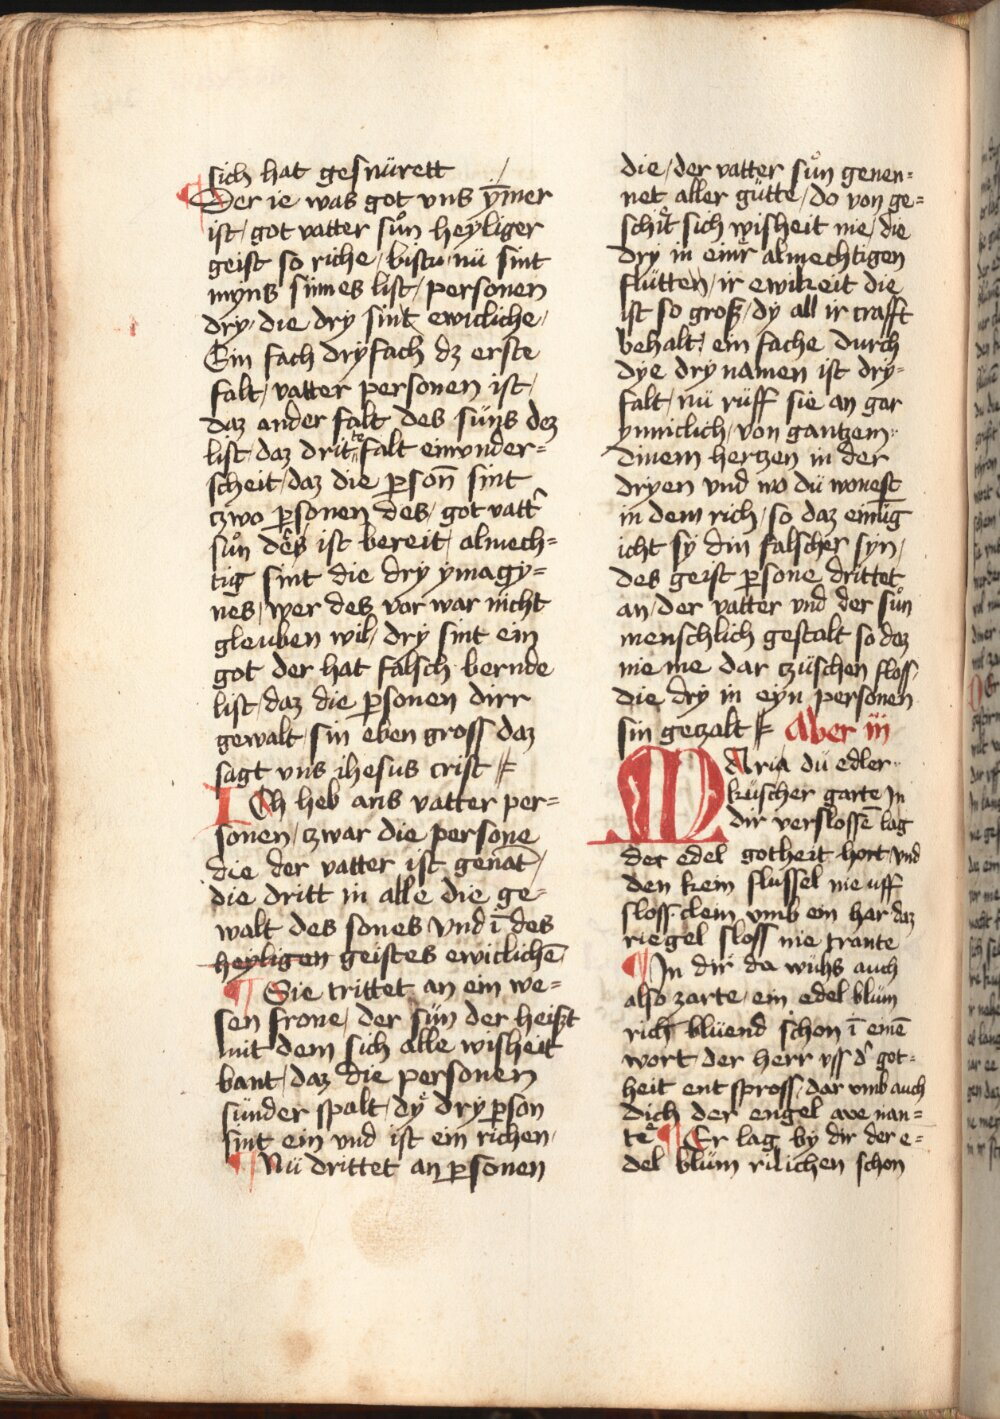 sich hat gesnürett /
Der ie was got vns ȳmer
ist / got vatter suͦn heyliger
geist so riche / bistu nü sint
myns sinnes list / personen
dry / die dry sint ewicliche /
Ein fach dryfach dz erste
falt / vatter personen ist /
daz ander falt des süns dez
list / daz dritte falt einvnder=
scheit / daz die ꝑson̄ sint
czwo ꝑsonen des / got vatt̉
suͦn des ist bereit / almech=
tig sint die dry ymagy=
nes / wer des vor war nicht
gleuben wil / dry sint ein
got der hat falsch bernde
list / daz die ꝑsonen dirr
gewalt / sin eben gross daz
sagt vns ihesus crist
Ich heb ans vatter per=
sonen / czwar die persone
die der vatter ist genāt /
die dritt in alle die ge=
walt des sones vnd ī des
heyligen geistes ewiclichē
¶ Sie trittet an ein we=
sen frone / der sün der heißt
mit dem sich alle wisheit
bant / daz die personen
sünder spalt / dy dry ꝑson
sint ein vnd ist ein richen /
¶ Nü drittet an ꝑsonen
die / der vatter suͦn genen=
net aller gütte / do von ge=
schit sich wisheit nie / die
dry in einr almechtigen
flütten / ir ewikeit die
ist so groß / dy all ir crafft
behalt / ein fache durch
dye dry namen ist dry=
falt / nü rüff sie an gar
ynniclich / von gantzem
dinem hertzen in der
dryen vnd wo dü wonest
in dem rich / so daz einnig
icht sy din falscher syn /
des geist ꝑsone drittet
an / der vatter vnd der suͦn
menschlich gestalt so daz
nie me dar czüschen floss /
die dry in eyn personen
sin geczalt Aber iii
MAria dü edler
küscher garte In
dir verslossē lag
der edel gotheit hort vnd
den kein slussel nie uff
sloss dem vmb ein har daz
riegel sloss nie trante
¶ In dir da wuhs auch
also zarte / ein edel blüm
rich blüend schon ī einē
wort der herr vss d̉ got=
heit entspross / dar vmb auch
dich der engel ave nan=
te ¶ Er lag by dir der e=
del blüm rilichen schon